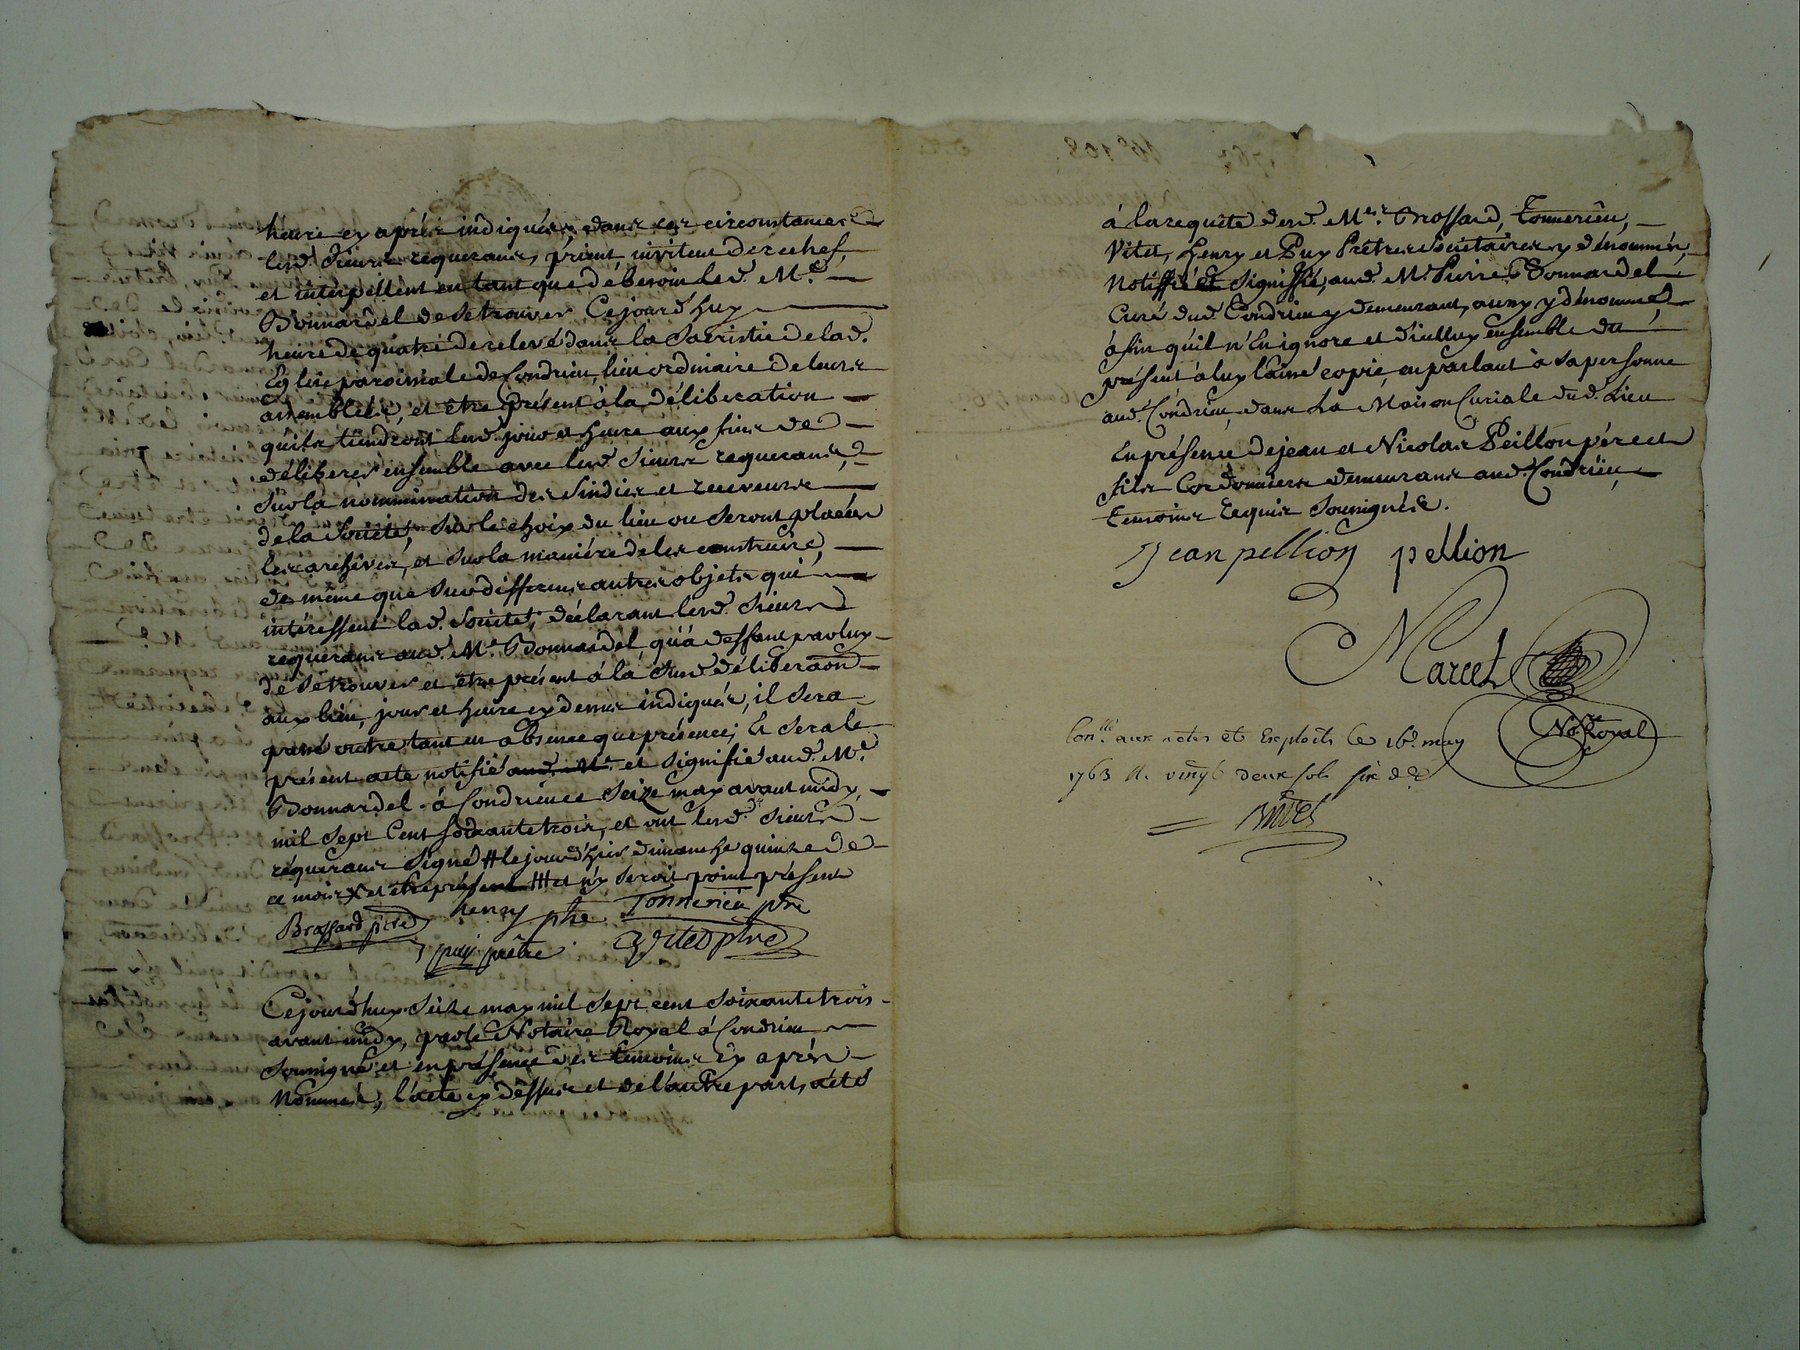 heure cy aprés indiquées, dans ces circonstances
lesd. sieurs requerans, prient, invitent derechef,
et interpellent en tant que de besoin led. Mre.
Bonnardel de se trouver Cejourd'huy
heure de quatre de relevé dans la Sacristie de lad.
Eglise paroissiale de Condrieu, lieu ordinaire de leurs
assemblées, et être présent à la déliberation
qu'ils tiendront lesd. jour et heure aux fins de
déliberer ensemble avec lesd. sieurs requerans,
sur la nommination des sindics et receveurs
de la Société, sur le choix du lieu ou seront placées
les archives, et sur la maniére de les construire,
de même que sur differens autres objets qui
intéressent lad. Société, déclarant lesd. sieurs
requerans aud. Mre. Bonnardel, qu'à deffaut par luy
de se trouver et être présent à la susd. déliberaon
aux lieu, jour et heure cy dessus indiqués, il sera
passé outre tant en absence que présence, Et sera le
présent acte notifié aud. Mre. et signifié aud. Mre.
Bonnardel à Condrieu ce seize may avant midy,
mil sept cent soixante trois, et ont lesd. sieurs
réquerans signé # le jour d'hier dimanche quinze de
ce mois X et être présent ## et n'y seroit point présent
Brossard ptre henry ptre Tonnerieu ptre
puy prêtre Vitet ptre
Cejourd'huy seize may mil sept cent soixante trois
avant midy, par le Notaire Royal à Condrieu
soussigné et en présence des temoins cy aprés
nommés, l'acte cy dessus et de l'autre part, a été
à la requête desd. Mres. Brossard, Tonnerieu,
Vitet, henry et Puy Prêtres sociétaires y dénommés,
Notiffié et signiffié, aud. Mre. Pierre Bonnardel
Curé dud. Condrieu y demeurant, aussy y dénommé,
à fin qu'il n'en ignore et d'icelluy ensemble du
présent à luy laissé copie, en parlant à sa personne
aud. Condrieu, dans La Maison Curiale dud. Lieu
En présence de jean et Nicolas Peillon pére et
fils Cordonniers demeurans aud. Condrieu,
temoins requis soussignés.
Jean pellion pellion
Marcet
Nore. Royal
Conllé. aux actes et Exploits le 16e. may
1763 R. vingt deux sols six d.